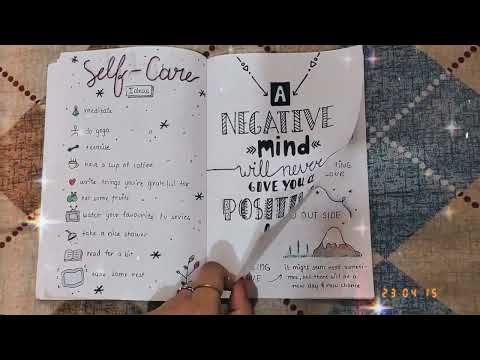 Self-Care
Ideas
meditate
do yoga
exercise
have a cup of coffee
write things you're grateful for
eat some fruits
watch your favourite tv series
take a nice shower
read for a bit
take some rest
A
NEGATIVE
Mind
will never
GIVE YOU A
OUT SIDE
it might seem
new day & new chance
23 04 15